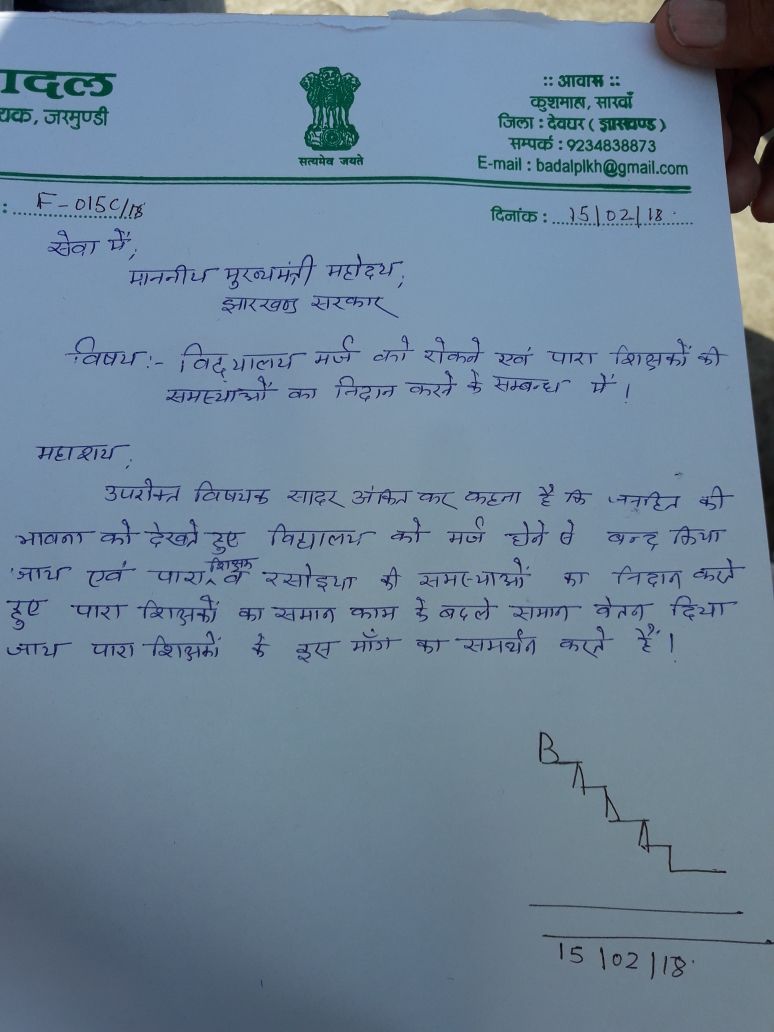 ादल
यक, जरमुण्डी
सत्यमेव जयते
:: आवास ::
कुशमाहा, सारवाँ
जिला : देवघर ( झारखण्ड )
सम्पर्क : 9234838873
E-mail : badalplkh@gmail.com
: F-015C/18
दिनांक : 15/02/18
सेवा में,
माननीय मुख्यमंत्री महोदय,
झारखण्ड सरकार
विषय:- विद्यालय मर्ज को रोकने एवं पारा शिक्षकों की
समस्याओं का निदान करने के सम्बन्ध में।
महाशय,
उपरोक्त विषयक सादर अंकित कर कहना है कि जनहित की
भावना को देखते हुए विद्यालय को मर्ज होने से बन्द किया
जाय एवं पारा शिक्षक व रसोइया की समस्याओं का निदान करते
हुए पारा शिक्षकों का समान काम के बदले समान वेतन दिया
जाय पारा शिक्षकों के इस माँग का समर्थन करते हैं।
BADAL
15/02/18